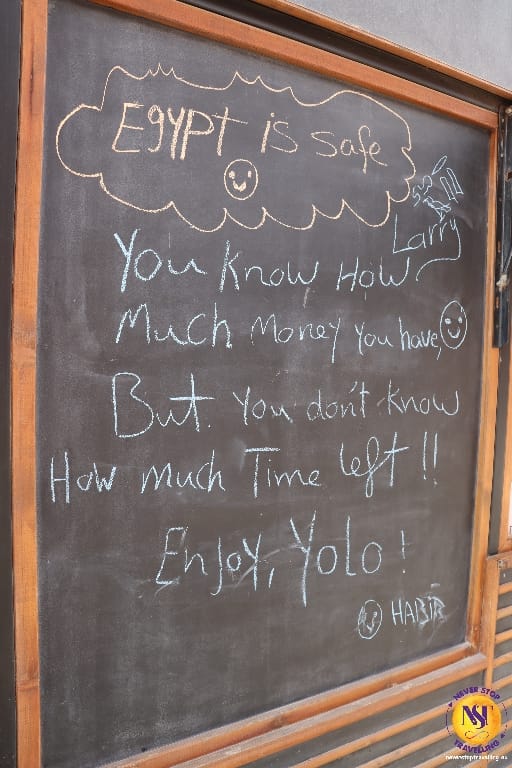 Egypt is safe
Larry
You know How
Much Money you have,
But you don't know
How much Time left !!
Enjoy, Yolo !
HABIB
NEVER STOP
NST
TRAVELLING
neverstoptravelling.eu